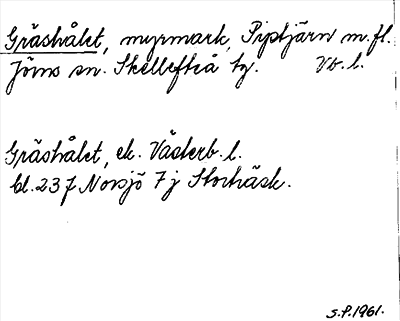 Gräshålet, myrmark, Piptjärn m.fl.
Jörns sn. Skellefteå tg. Vb. l.
Gräshålet, ek. Västerb. l.
bl. 237 Norsjö 7j Storträsk.
S.P. 1961.